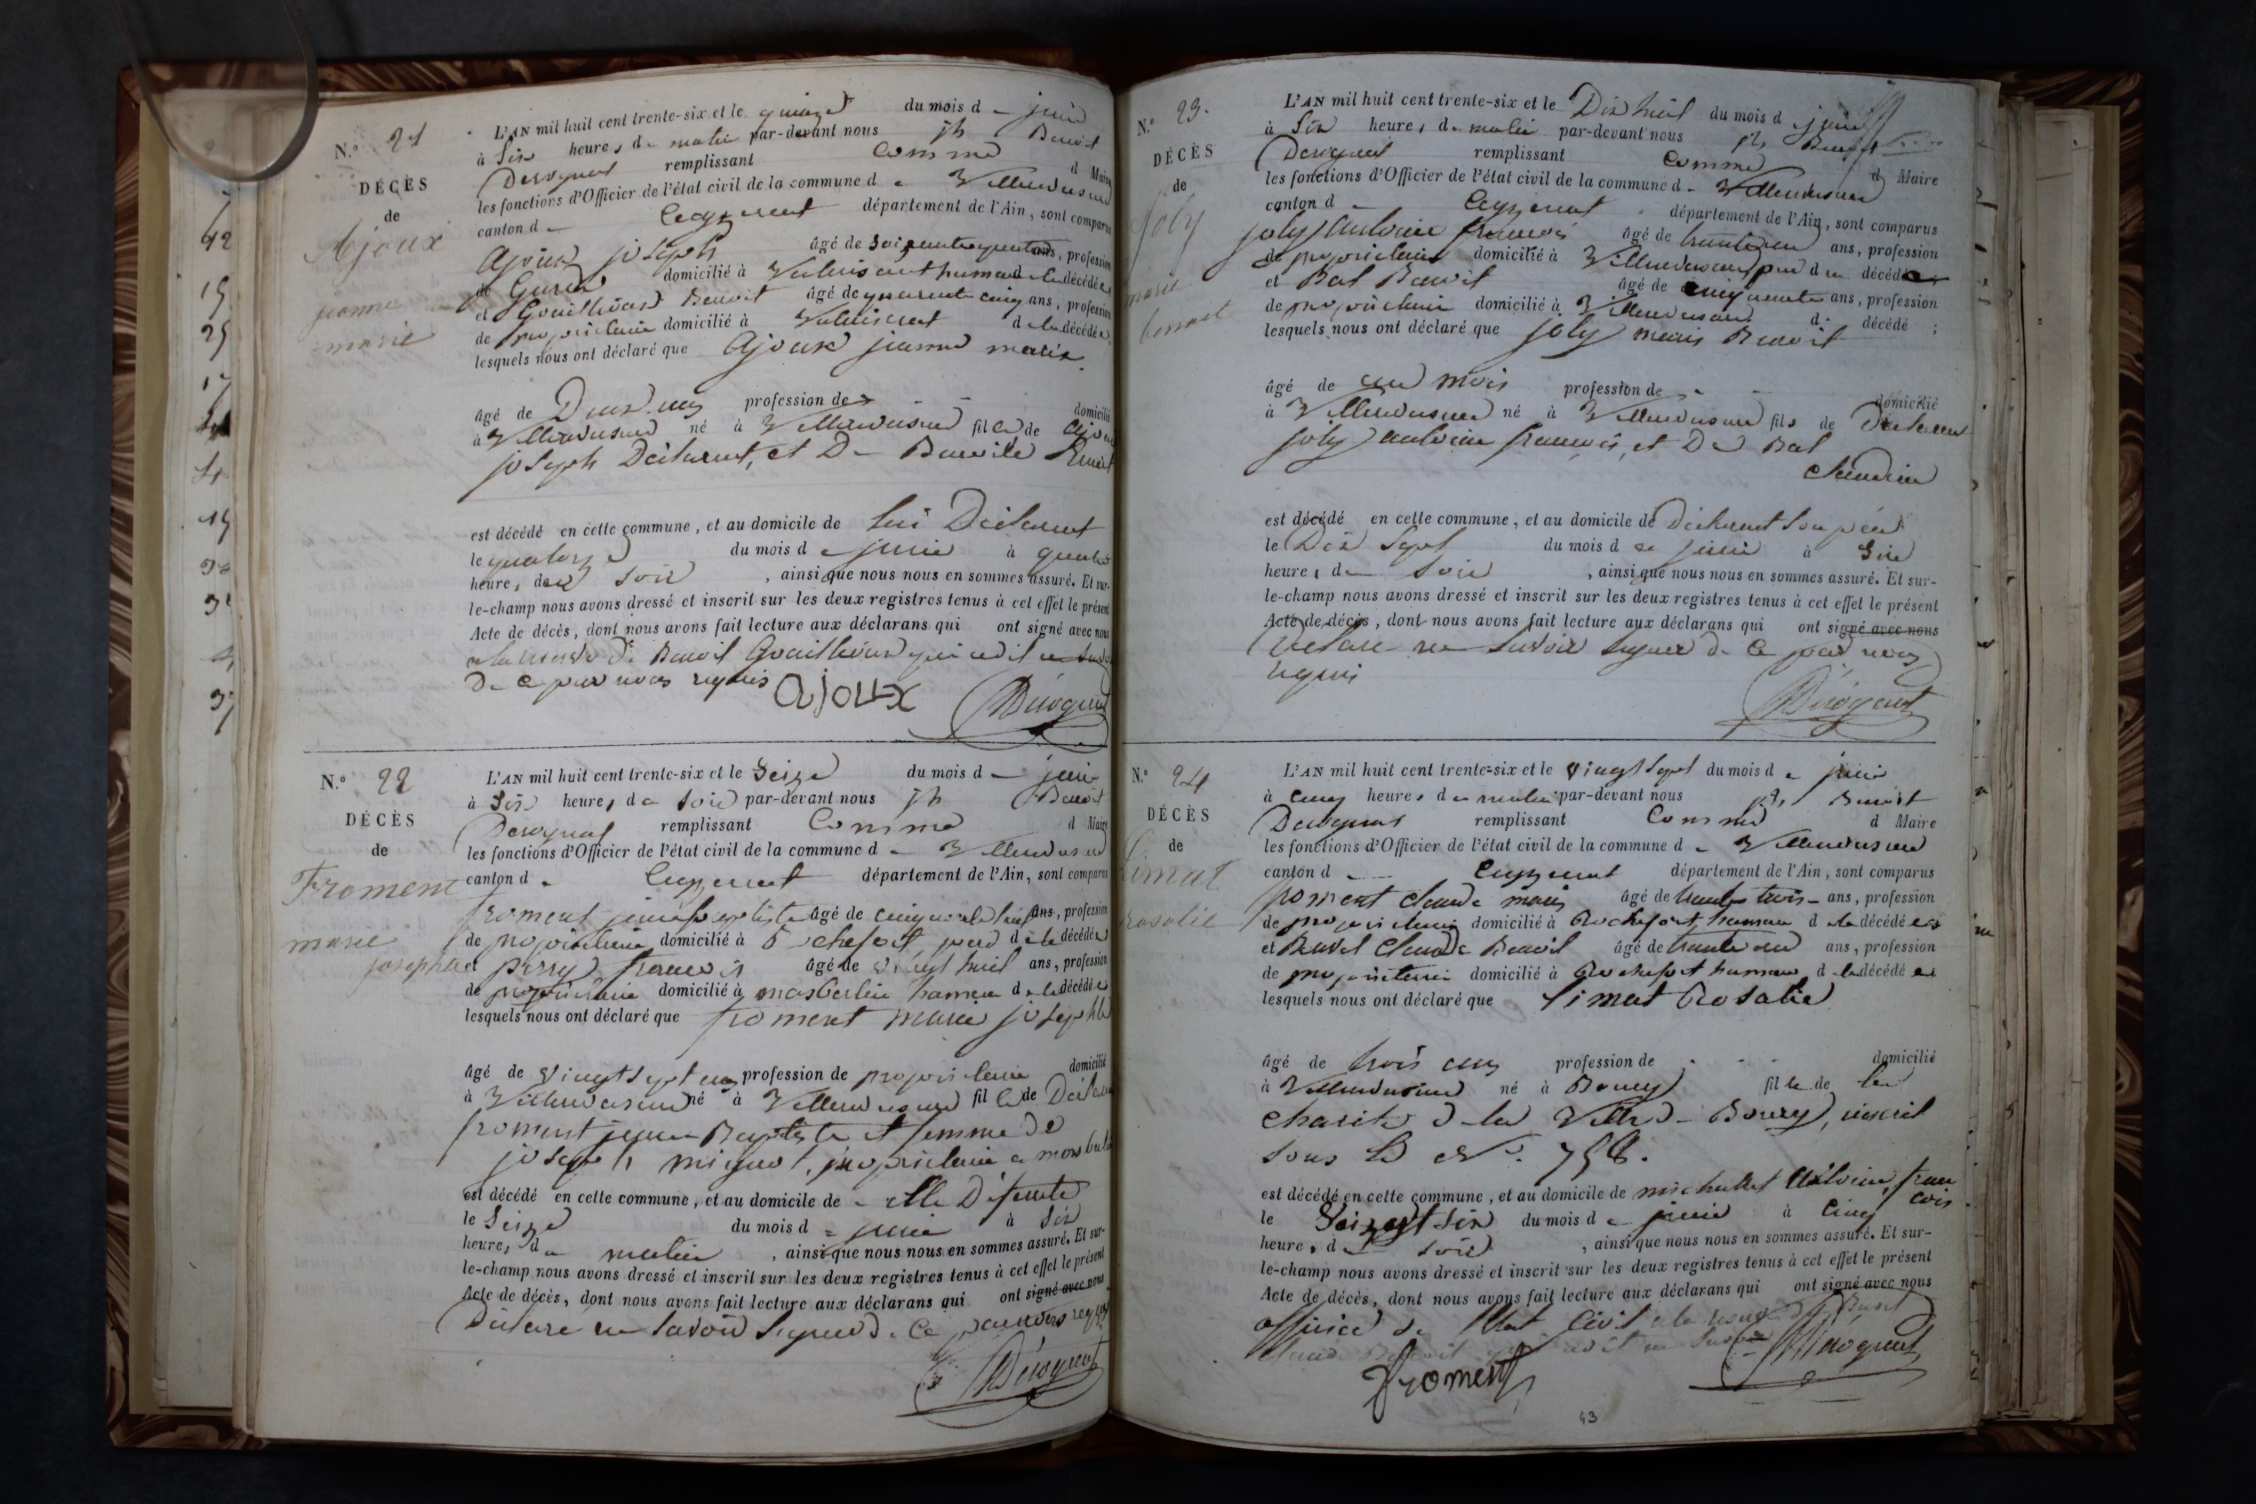 N.º 21
DÉCÈS
de
Ajoux
jeanne
marie
L'AN mil huit cent trente-six et le quinze du mois d e juin
à Six heures du matin par-devant nous jh Benoit
Derognat remplissant comme d Maire
les fonctions d'Officier de l'état civil de la commune d e Villereversure
canton d e Ceyzeriat département de l'Ain, sont comparus
Ajoux joseph âgé de soixante quatre ans, profession
de domicilié à hameau de la décédée
et Gouilloux Benoit âgé de quarante cinq ans, profession
de propriétaire domicilié à d la décédée
lesquels nous ont déclaré que Ajoux jeanne marie
âgé de Deux ans profession de domicilié
à Villereversure né à Villereversure fille de Ajoux
joseph Déclarant, et De Benoite
est décédé en cette commune, et au domicile de lui Déclarant
le quatorze du mois d e juin à quatre
heures du soir, ainsi que nous nous en sommes assuré. Et sur-
le-champ nous avons dressé et inscrit sur les deux registres tenus à cet effet le présent
Acte de décès, dont nous avons fait lecture aux déclarans qui ont signé avec nous
Benoit Gouilloux qui a dit ne savoir
de ce par nous requis Ajoux Dérognat
N.º 22
DÉCÈS
de
Froment
marie
josephte
L'AN mil huit cent trente-six et le Seize du mois d e juin
à Six heures du soir par-devant nous jh Benoit
Derognat remplissant Comme d Maire
les fonctions d'Officier de l'état civil de la commune d e Villereversure
canton d e Ceyzeriat département de l'Ain, sont comparus
froment jean baptiste âgé de cinquante huit ans, profession
de propriétaire domicilié à Rochefort père de la décédée
et perry françois âgé de vingt huit ans, profession
de propriétaire domicilié à hameau de la décédée
lesquels nous ont déclaré que froment marie josephte
âgé de vingt sept ans profession de propriétaire domicilié
à Villereversure né à Villereversure fille de Déclarant
froment jean Baptiste et femme de
joseph mignot, propriétaire a
est décédé en cette commune, et au domicile de elle Défunte
le Seize du mois d e juin à Six
heures du matin, ainsi que nous nous en sommes assuré. Et sur-
le-champ nous avons dressé et inscrit sur les deux registres tenus à cet effet le présent
Acte de décès, dont nous avons fait lecture aux déclarans qui ont signé avec nous
Déclare ne savoir signer de ce par nous requis
Dérognat
N.º 23.
DÉCÈS
de
Joly
marie
benoit
L'AN mil huit cent trente-six et le Dix huit du mois d e juin
à Six heures du matin par-devant nous jh Benoit
Derognat remplissant comme d Maire
les fonctions d'Officier de l'état civil de la commune d e Villereversure
canton d e Ceyzeriat département de l'Ain, sont comparus
joly antoine françois âgé de trente un ans, profession
de propriétaire domicilié à Villereversure père d u décédé
et Bal Benoit âgé de cinquante ans, profession
de propriétaire domicilié à Villereversure d décédé ;
lesquels nous ont déclaré que joly marie Benoit
âgé de un mois profession de domicilié
à Villereversure né à Villereversure fils de Déclarant
joly antoine françois, et De Bal
Claudine
est décédé en cette commune, et au domicile de Déclarant son père
le Dix Sept du mois d e juin à Six
heures du soir, ainsi que nous nous en sommes assuré. Et sur-
le-champ nous avons dressé et inscrit sur les deux registres tenus à cet effet le présent
Acte de décès, dont nous avons fait lecture aux déclarans qui ont signé avec nous
Déclare ne savoir signer de ce par nous
requis
Dérognat
N.º 24
DÉCÈS
de
Limat
rosalie
L'AN mil huit cent trente-six et le vingt sept du mois d e juin
à cinq heures du matin par-devant nous jh Benoit
Derognat remplissant Comme d Maire
les fonctions d'Officier de l'état civil de la commune d e Villereversure
canton d e Ceyzeriat département de l'Ain, sont comparus
froment claude marie âgé de trente trois ans, profession
de propriétaire domicilié à Rochefort, hameau d la décédée
et Buvet Claude Benoit âgé de trente un ans, profession
de propriétaire domicilié à Rochefort hameau d la décédée
lesquels nous ont déclaré que Limat Rosalie
âgé de trois ans profession de domicilié
à Villereversure né à Bourg fille de la
charité de la Ville de Bourg, inscrit
sous le N.º 758.
est décédé en cette commune, et au domicile de michallet antoine fran
çois
le Vingt Six du mois d e juin à Cinq
heures du soir, ainsi que nous nous en sommes assuré. Et sur-
le-champ nous avons dressé et inscrit sur les deux registres tenus à cet effet le présent
Acte de décès, dont nous avons fait lecture aux déclarans qui ont signé avec nous
officier de l'état Civil
Claude Benoit qui a dit ne savoir Dérognat
froment
43